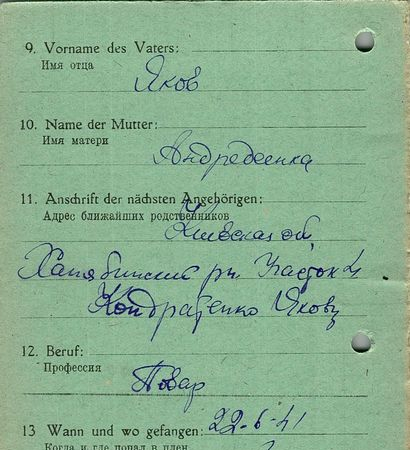 9. Vorname des Vaters:
Имя отца
Яков
10. Name der Mutter:
Имя матери
11. Anschrift der nächsten Angehörigen:
Адрес ближайших родственников
Киевская об.
рн.
Кондратенко Якову
12. Beruf:
Профессия
Повар
13 Wann und wo gefangen: 22-6-41
Когда и где попал в плен